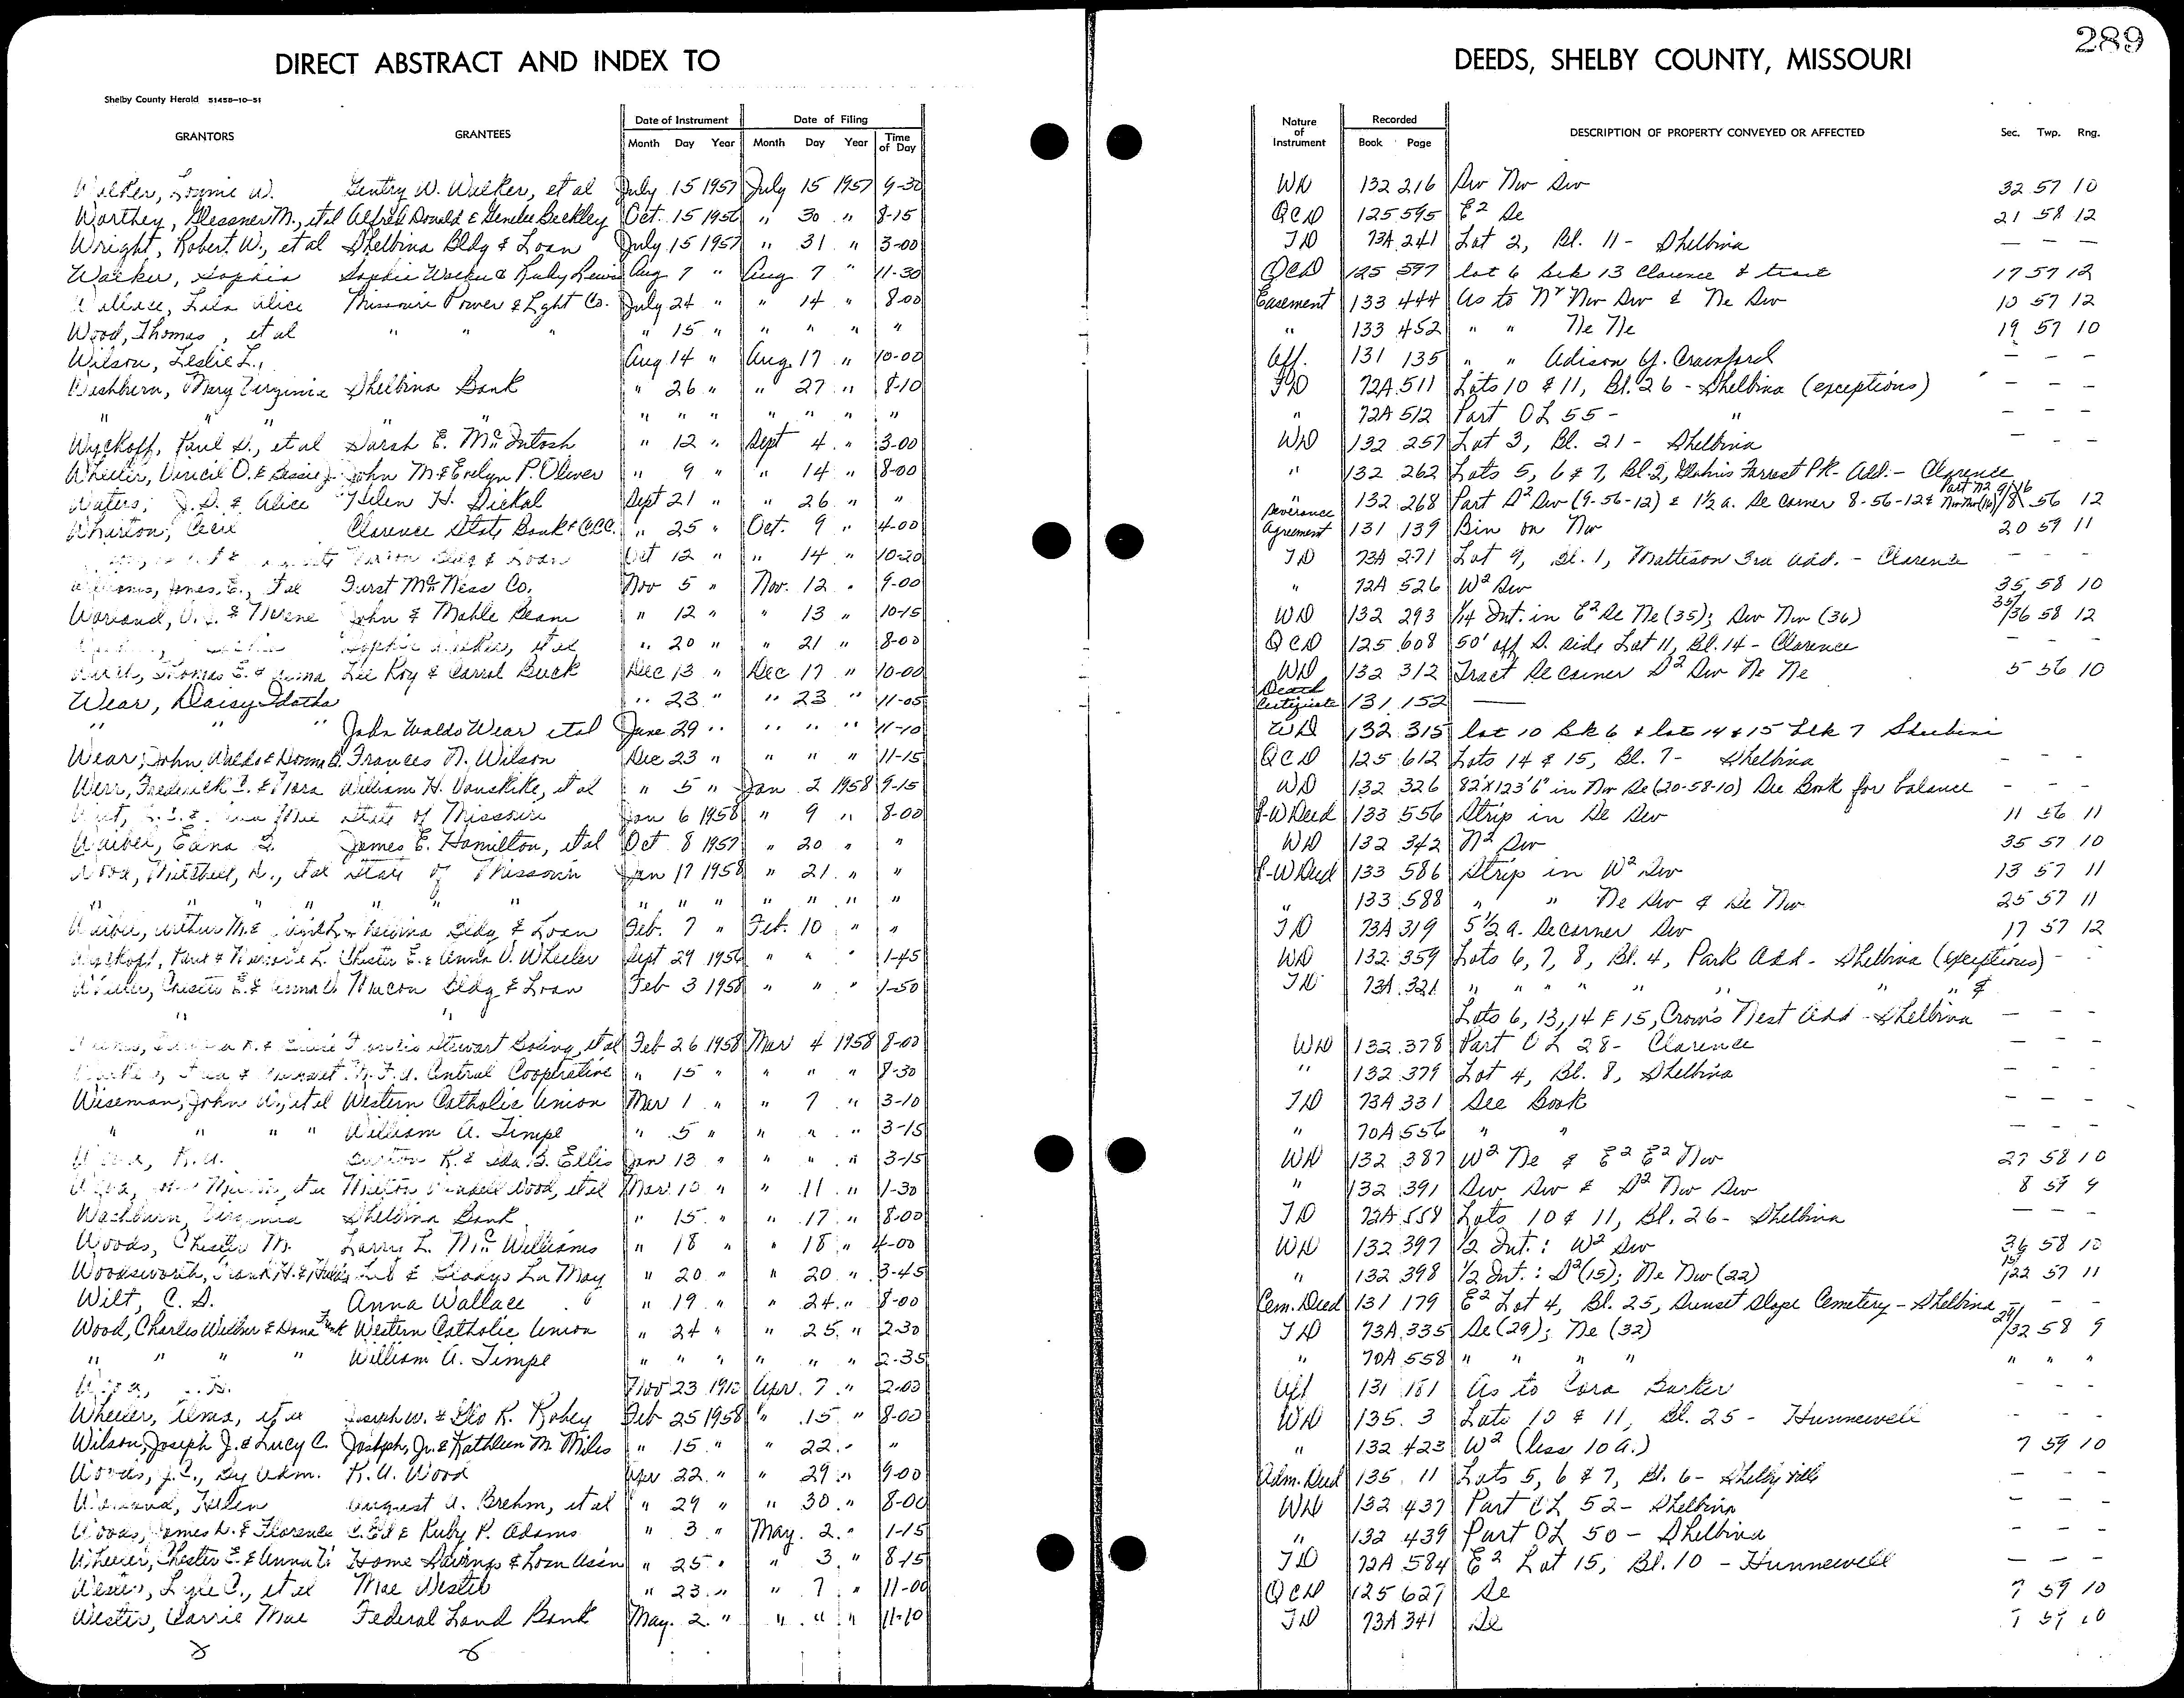 289
DIRECT ABSTRACT AND INDEX TO DEEDS, SHELBY COUNTY, MISSOURI
Shelby County Herald 51458-10-51
GRANTORS GRANTEES Date of Instrument Date of Filing Nature of Instrument Recorded DESCRIPTION OF PROPERTY CONVEYED OR AFFECTED Sec. Twp. Rng.
Month Day Year Month Day Year Time of Day Book Page
Walker, W. Gentry W. Walker, et al July 15 1957 July 15 1957 9-30 WD 132 216 Sw Nw Sw 32 57 10
Worthey, Glessner M., et al Alfred Donald & Beckley Oct. 15 1956 " 30 " 8-15 QCD 125 595 E² Se 21 58 12
Wright, Robert W., et al Shelbina Bldg & Loan July 15 1957 " 31 " 3-00 TD 73A 241 Lot 2, Bl. 11 - Shelbina — — —
Walker, Sophia Sophie Walker & Ruby Lewis Aug 7 " Aug 7 " 11-30 QCD 125 597 lot 6 Blk 13 Clarence & tract 17 57 12
Wallace, Lela Alice Missouri Power & Lght Co. July 24 " " 14 " 8-00 Easement 133 444 As to Nw Sw & Ne Sw 10 57 12
Wood, Thomas, et al " " " " 15 " " " " " " 133 452 " " Ne Ne 19 57 10
Wilson, Leslie L., Aug 14 " Aug. 17 " 10-00 Aff. 131 135 " " Adison Y. Crawford — — —
Washburn, Mary Virginia Shelbina Bank " 26 " " 27 " 8-10 TD 72A 511 Lots 10 & 11, Bl. 26 - Shelbina (exceptions) — — —
" " " " " " " " " " " 72A 512 Part OL 55 - " — — —
Wyckoff, Paul D., et al Sarah E. McIntosh " 12 " Sept 4 " 3-00 WD 132 257 Lot 3, Bl. 21 - Shelbina — — —
Wheeler, Vincil O. & Bessie J. John M & Evelyn P. Oliver " 9 " " 14 " 8-00 " 132 262 Lots 5, 6 & 7, Bl. 2, Forrest Pk- Add. - Clarence
Waters, J. D. & Alice Helen H. Dickal Sept 21 " " 26 " " " 132 268 Part S² Sw (9-56-12) & 1½ a. Se corner 8-56-12 & Part N2 Nw Nw (16) 9/16 /8 56 12
Wharton, Cecil Clarence State Bank & CCC. " 25 " Oct. 9 " 4-00 Severance Agreement 131 139 Bin on Nw 20 59 11
Bldg & Loan Oct 12 " " 14 " 10-20 TD 73A 271 Lot 9, Bl. 1, Mattison 3rd Add. - Clarence - - -
Williams, James E., et al Furst McNess Co. Nov 5 " Nov. 12 " 9-00 " 72A 526 W² Sw 35 58 10
Worland, & Nurene John & Mable Beam " 12 " " 13 " 10-15 WD 132 293 1/14 Int. in E² Se Ne (35); Sw Nw (36) 35/36 58 12
et al " 20 " " 21 " 8-00 QCD 125 608 50' off S. side Lot 11, Bl. 14 - Clarence — — —
Thomas E. & Lee Roy & Carrol Buck Dec 13 " Dec 17 " 10-00 WD 132 312 Tract Se corner S² Sw Ne Ne 5 56 10
Wear, Daisy " 23 " " 23 " 11-05 Death Certificate 131 152 —
" " John Waldo Wear et al June 29 " " " " 11-10 WD 132 315 lot 10 Blk 6 & lots 14 & 15 Blk 7 Shelbina
Wear, John Waldo & Donna D. Frances N. Wilson Dec 23 " " " " 11-15 QCD 125 612 Lots 14 & 15, Bl. 7 - Shelbina - - -
Werr, Frederick C. & Nora William H. Vanskike, et al " 5 " Jan 2 1958 9-15 WD 132 326 82'x123'6" in Nw Se (20-58-10) See Book for balance - - -
State of Missouri Jan 6 1958 " 9 " 8-00 R-W Deed 133 556 Strip in Se Sw 11 56 11
Waibel, Edna James E. Hamilton, et al Oct 8 1957 " 20 " " WD 132 342 N² Sw 35 57 10
Wood, Mitchell, et al State of Missouri Jan 17 1958 " 21 " " R-W Deed 133 586 Strip in W² Sw 13 57 11
" " " " " " " " " " " " " " 133 588 " " Ne Sw & Se Nw 25 57 11
Waibel, Arthur M. & Shelbina Bldg & Loan Feb. 7 " Feb. 10 " " TD 73A 319 5½ a. Se corner Sw 17 57 12
Wyckoff, Paul & Chester E. & Anna V. Wheeler Sept 29 1956 " " " 1-45 WD 132 359 Lots 6, 7, 8, Bl. 4, Park Add - Shelbina (exceptions) - -
Wheeler, Chester E. & Anna V. Macon Bldg & Loan Feb 3 1958 " " " 1-50 TD 73A 321 " " " " " " " " &
" " Lots 6, 13, 14 & 15, Crow's Nest Add - Shelbina — — —
Stewart et al Feb 26 1958 Mar 4 1958 8-00 WD 132 378 Part OL 28 - Clarence — — —
M.F.A. Central Cooperative " 15 " " " " 8-30 " 132 379 Lot 4, Bl. 8, Shelbina — — —
Wiseman, John et al Western Catholic Union Mar 1 " " 7 " 3-10 TD 73A 331 See Book — — —
" " " " William A. Timpe " 5 " " " " 3-15 " 70A 556 " " — — —
Wood, R. A. Burton R. & Ida B. Ellis Jan 13 " " " " 3-15 WD 132 387 W² Ne & E² E² Nw 27 58 10
et al Milton Wood, et al Mar 10 " " 11 " 1-30 " 132 391 Sw Sw & S² Nw Sw 8 59 9
Washburn, Virginia Shelbina Bank " 15 " " 17 " 8-00 TD 72A 558 Lots 10 & 11, Bl. 26 - Shelbina — — —
Woods, Chester M. Larry L. McWilliams " 18 " " 18 " 4-00 WD 132 397 ½ Int.: W² Sw 36 58 10
Woodsworth, Frank H. & & Gladys La May " 20 " " 20 " 3-45 " 132 398 ½ Int.: S² (15); Ne Nw (22) 15/22 57 11
Wilt, C. D. Anna Wallace " 19 " " 24 " 8-00 Cem. Deed 131 179 E² Lot 4, Bl. 25, Sunset Slope Cemetery - Shelbina — - -
Wood, Charles Wilber & Dona Western Catholic Union " 24 " " 25 " 2-30 TD 73A 335 Se (29); Ne (32) 29/32 58 9
" " " " William A. Timpe " " " " " " 2-35 " 70A 558 " " " " " " "
Nov 23 Apr. 7 " 2-00 Aff 131 181 As to Cora Barker - - -
Wheeler, Alma, et al Joseph W. & Geo R. Robey Feb 25 1958 " 15 " 8-00 WD 135 3 Lots 10 & 11, Bl. 25 - Hunnewell - - -
Wilson, Joseph J. & Lucy C. Joseph, Jr. & Kathleen M. Miles " 15 " " 22 " " " 132 423 W² (less 10 a.) 7 59 10
Woods, J. C., By Adm. R. A. Wood Apr 22 " " 29 " 9-00 Adm. Deed 135 11 Lots 5, 6 & 7, Bl. 6 - Shelbyville — — —
Helen August A. Brehm, et al " 29 " " 30 " 8-00 WD 132 437 Part OL 52 - Shelbina - - -
Woods, James & Florence & Ruby P. Adams " 3 " May. 2 " 1-15 " 132 439 Part OL 50 - Shelbina — — —
Wheeler, Chester E. & Anna V. Home Savings & Loan Ass'n " 25 " " 3 " 8-15 TD 72A 584 E² Lot 15, Bl. 10 - Hunnewell — — —
Wester, Lyle C., et al Mae Wester " 23 " " 7 " 11-00 QCD 125 627 Se 7 59 10
Wester, Carrie Mae Federal Land Bank May. 2 " " " " 11-10 TD 73A 341 Se 7 59 10